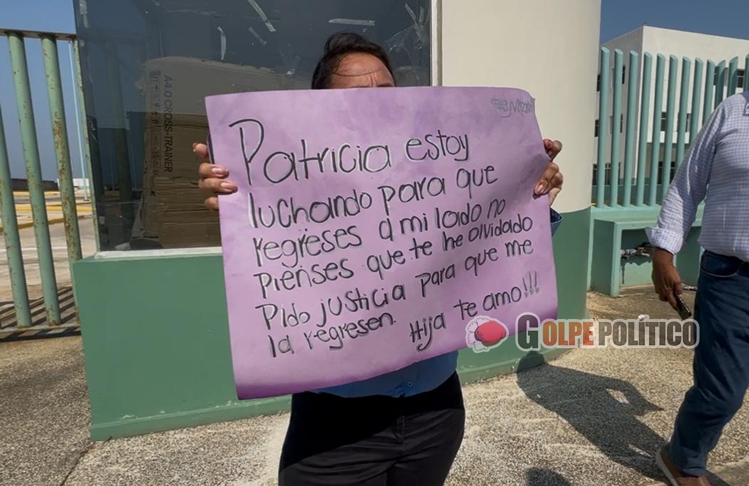 Patricia estoy
luchando para que
regreses a mi lado no
pienses que te he olvidado
Pido justicia para que me
la regresen.
Hija te amo!!!
GOLPE POLÍTICO
A4.0 CROSS-TRAINER